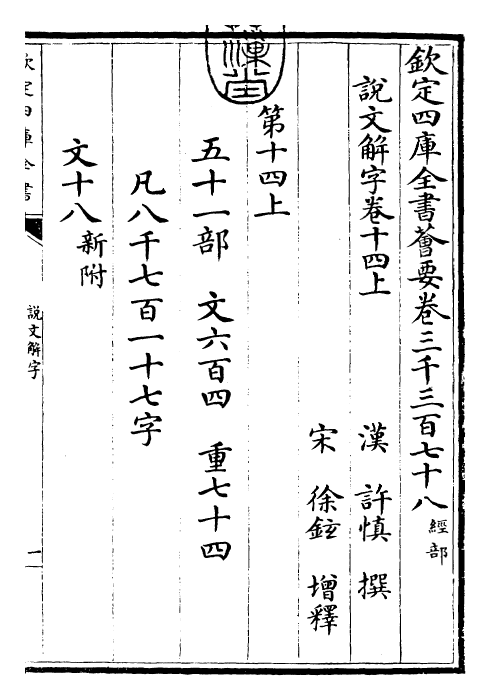 欽定四庫全書薈要卷三千三百七十八 經部
說文解字卷十四上
漢 許慎 撰
宋 徐鉉 增釋
第十四上
五十一部 文六百四 重七十四
凡八千七百一十七字
文十八 新附
欽定四庫全書
說文解字
一